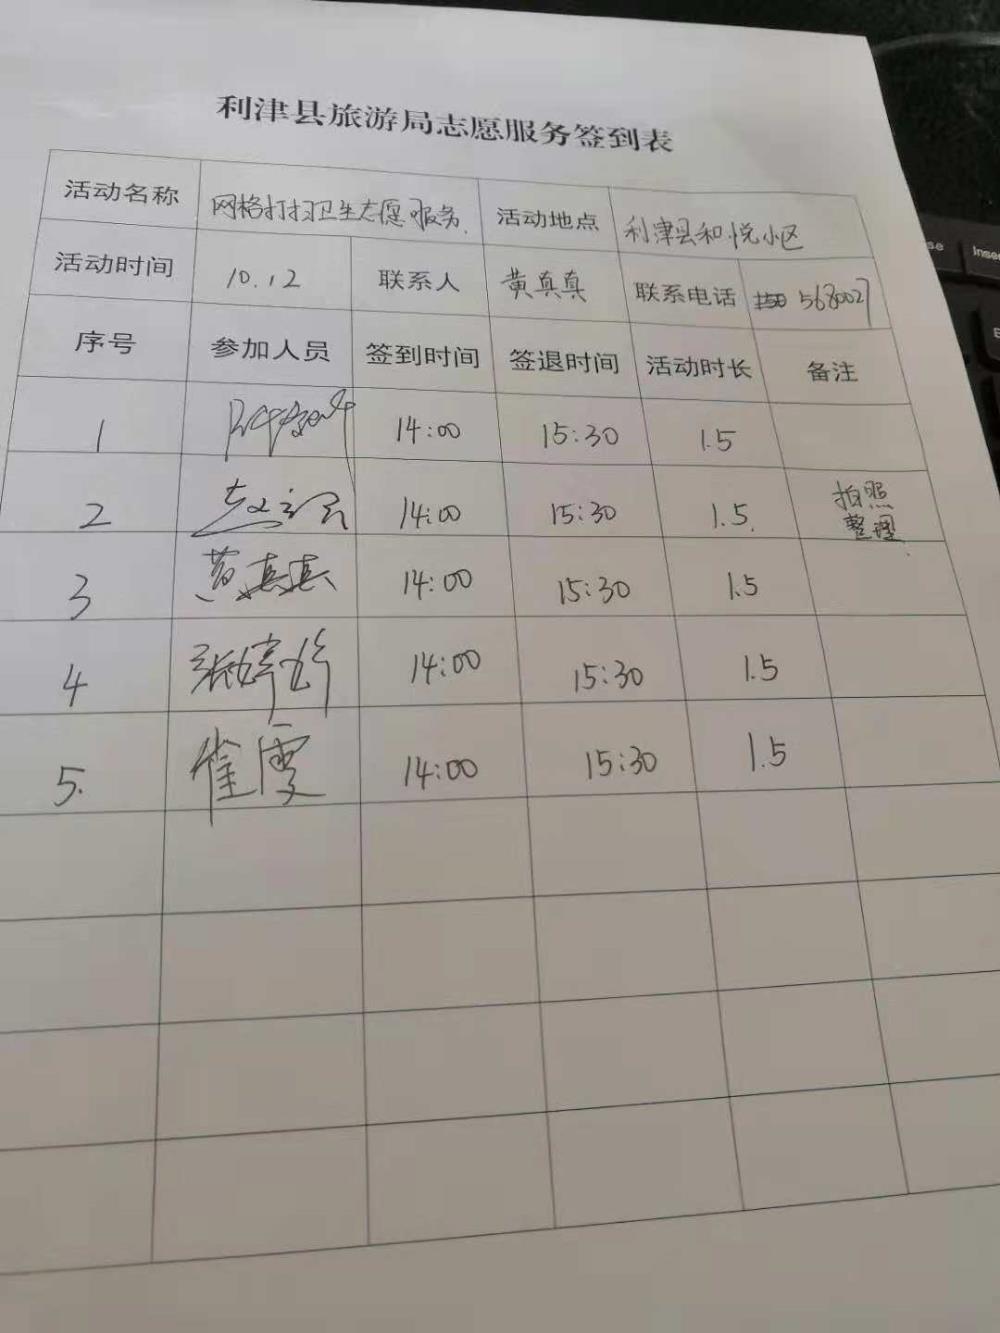 利津县旅游局志愿服务签到表
活动名称 网格打扫卫生志愿服务. 活动地点 利津县和悦小区
活动时间 10.12 联系人 黄真真 联系电话 5680027
序号 参加人员 签到时间 签退时间 活动时长 备注
1 14:00 15:30 1.5
2 14:00 15:30 1.5. 拍照
整理
3 黄真真 14:00 15:30 1.5
4 张婷婷 14:00 15:30 1.5
5. 崔雯 14:00 15:30 1.5
Inse